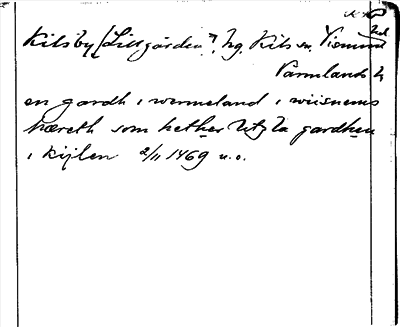 Kilsby (Lillgården?), hg, Kils sn, Visnums hd
Värmlands l.
en gardh i wermeland i wiisnems
hæreth som hether litzla gardhen
i kijlen 2/11 1469 u.o.